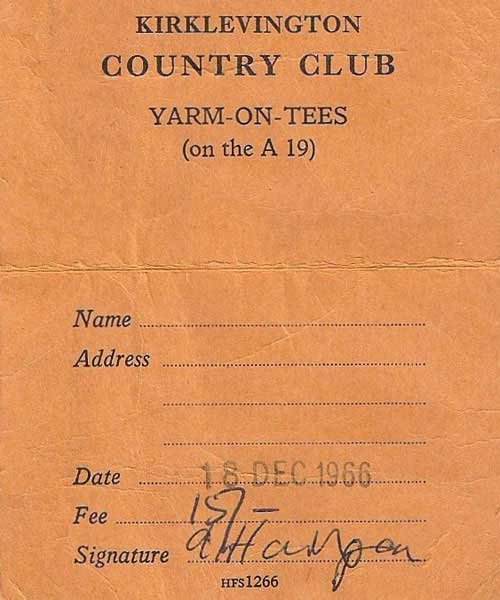 KIRKLEVINGTON
COUNTRY CLUB
YARM-ON-TEES
(on the A 19)
Name
Address
Date 18 DEC 1966
Fee 15/-
Signature
HFS1266